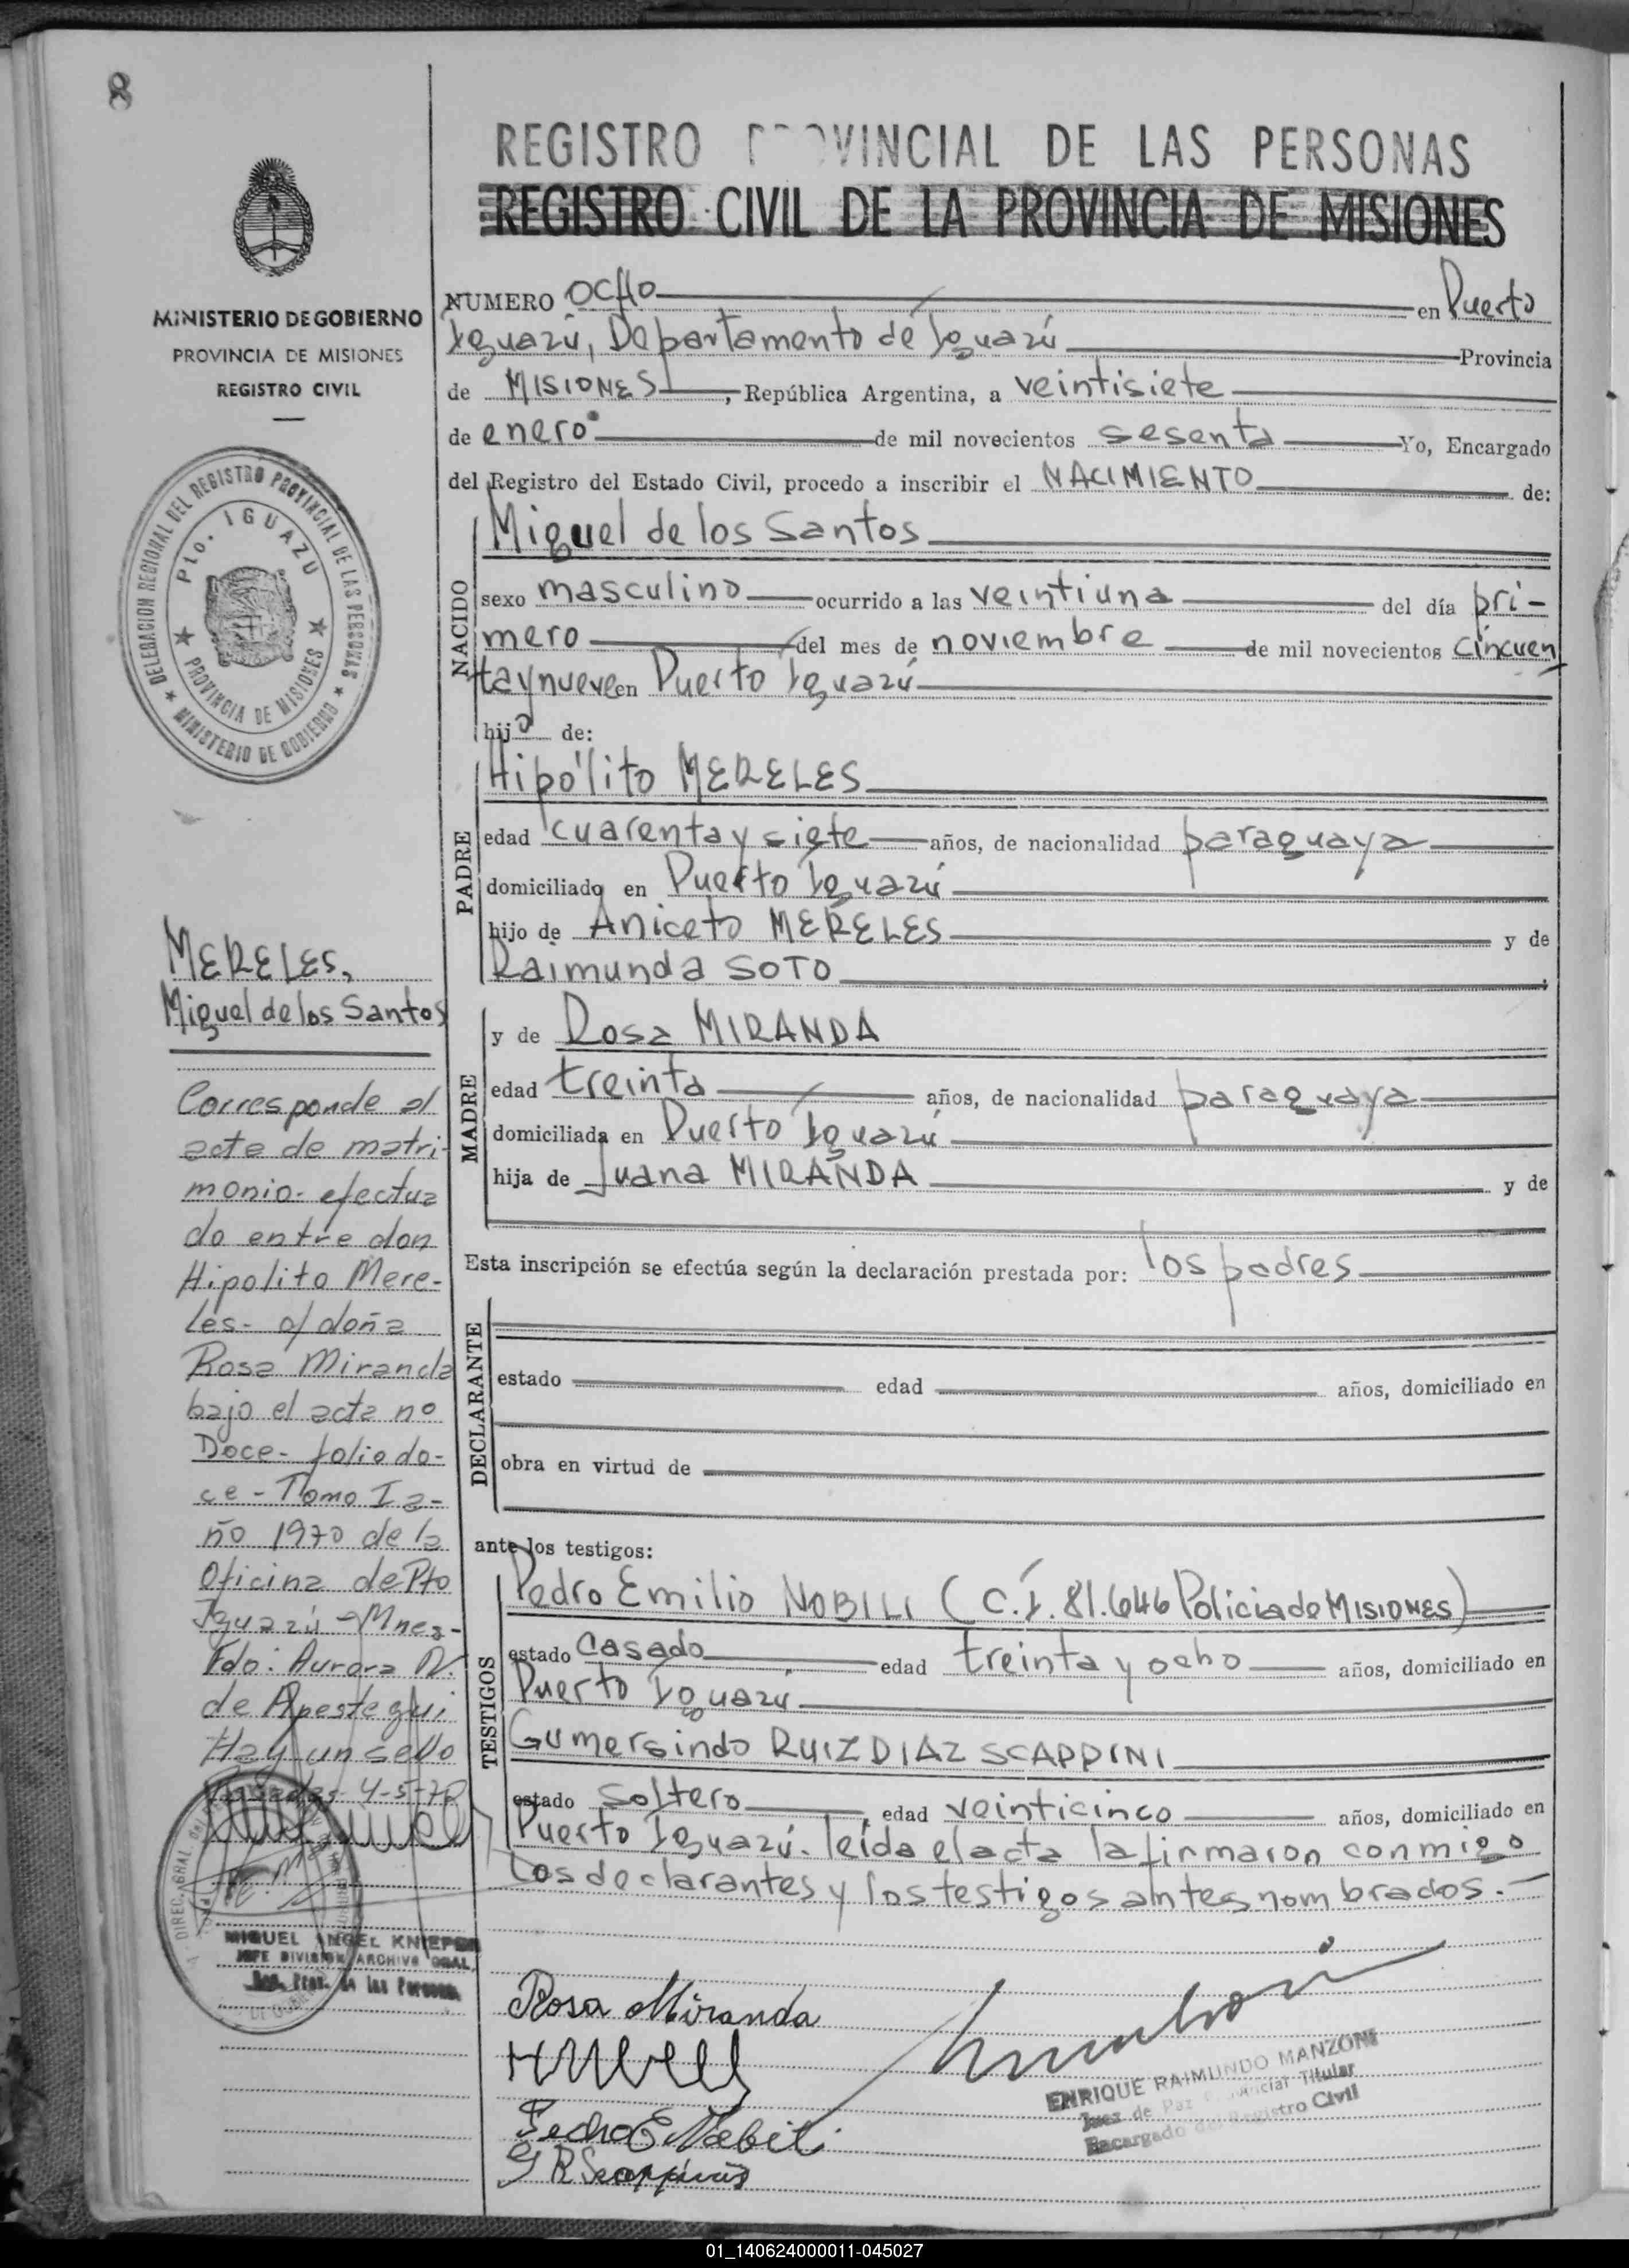 8
REGISTRO PROVINCIAL DE LAS PERSONAS
REGISTRO CIVIL DE LA PROVINCIA DE MISIONES
MINISTERIO DE GOBIERNO
PROVINCIA DE MISIONES
REGISTRO CIVIL
DELEGACION REGIONAL DEL REGISTRO PROVINCIAL DE LAS PERSONAS
★ MINISTERIO DE GOBIERNO ★
Pto. IGUAZU
★ PROVINCIA DE MISIONES ★
MERELES,
Miguel de los Santos
Corresponde al
acta de matri-
monio- efectua
do entre don
Hipolito Mere-
les- c/ doña
Rosa Miranda
bajo el acta nº
Doce- folio do-
ce - Tomo I a-
ño 1970 de la
Oficina de Pto
Iguazú - Mnes-
Fdo: Aurora N.
de Apestegui
Hay un sello
Posadas 4-5-70
MIGUEL ANGEL KNIEPER
JEFE DIVISION ARCHIVO GRAL.
Reg. Prov. de las Personas
NUMERO OCHO en Puerto
Iguazú, Departamento de Iguazú Provincia
de MISIONES, República Argentina, a veintisiete
de enero de mil novecientos sesenta Yo, Encargado
del Registro del Estado Civil, procedo a inscribir el NACIMIENTO de:
NACIDO
Miguel de los Santos
sexo masculino ocurrido a las veintiuna del día pri-
mero del mes de noviembre de mil novecientos cincuen
ta y nueve en Puerto Iguazú
hijo de:
PADRE
Hipólito MERELES
edad cuarenta y siete años, de nacionalidad paraguaya
domiciliado en Puerto Iguazú
hijo de Aniceto MERELES y de
Raimunda SOTO
MADRE
y de Rosa MIRANDA
edad treinta años, de nacionalidad paraguaya
domiciliada en Puerto Iguazú
hija de Juana MIRANDA y de
Esta inscripción se efectúa según la declaración prestada por: los padres
DECLARANTE
estado edad años, domiciliado en
obra en virtud de
ante los testigos:
TESTIGOS
Pedro Emilio NOBILI (C.I. 81.646 Policia de MISIONES)
estado Casado edad treinta y ocho años, domiciliado en
Puerto Iguazú
Gumersindo RUIZ DIAZ SCAPPINI
estado Soltero, edad veinticinco años, domiciliado en
Puerto Iguazú. leída el acta la firmaron conmigo
los declarantes y los testigos antes nombrados.-
Rosa Miranda
Pedro E Nobili
G R Scappini
ENRIQUE RAIMUNDO MANZONI
Juez de Paz Provincial Titular
Encargado del Registro Civil
01_140624000011-045027